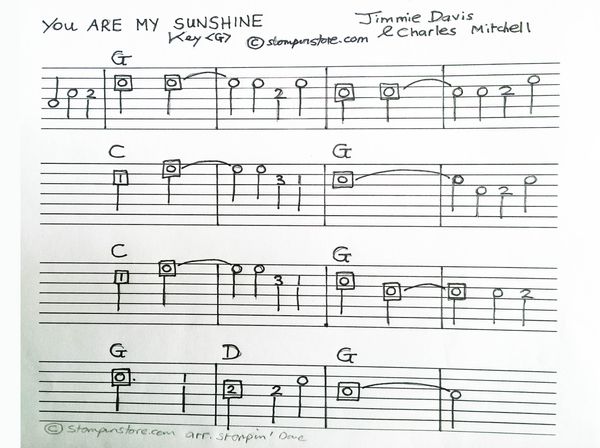 YOU ARE MY SUNSHINE
Jimmie Davis
Key <G> © stompinstore.com & Charles Mitchell
G
0 0 2 0 0 0 0 2 0 0 0 0 0 2 0
C G
1 0 0 0 3 1 0 0 0 2 0
C G
1 0 0 0 3 1 0 0 0 0 2
G D G
0. 1 2 2 0 0 0
© Stompinstore.com arr. Stompin' Dave